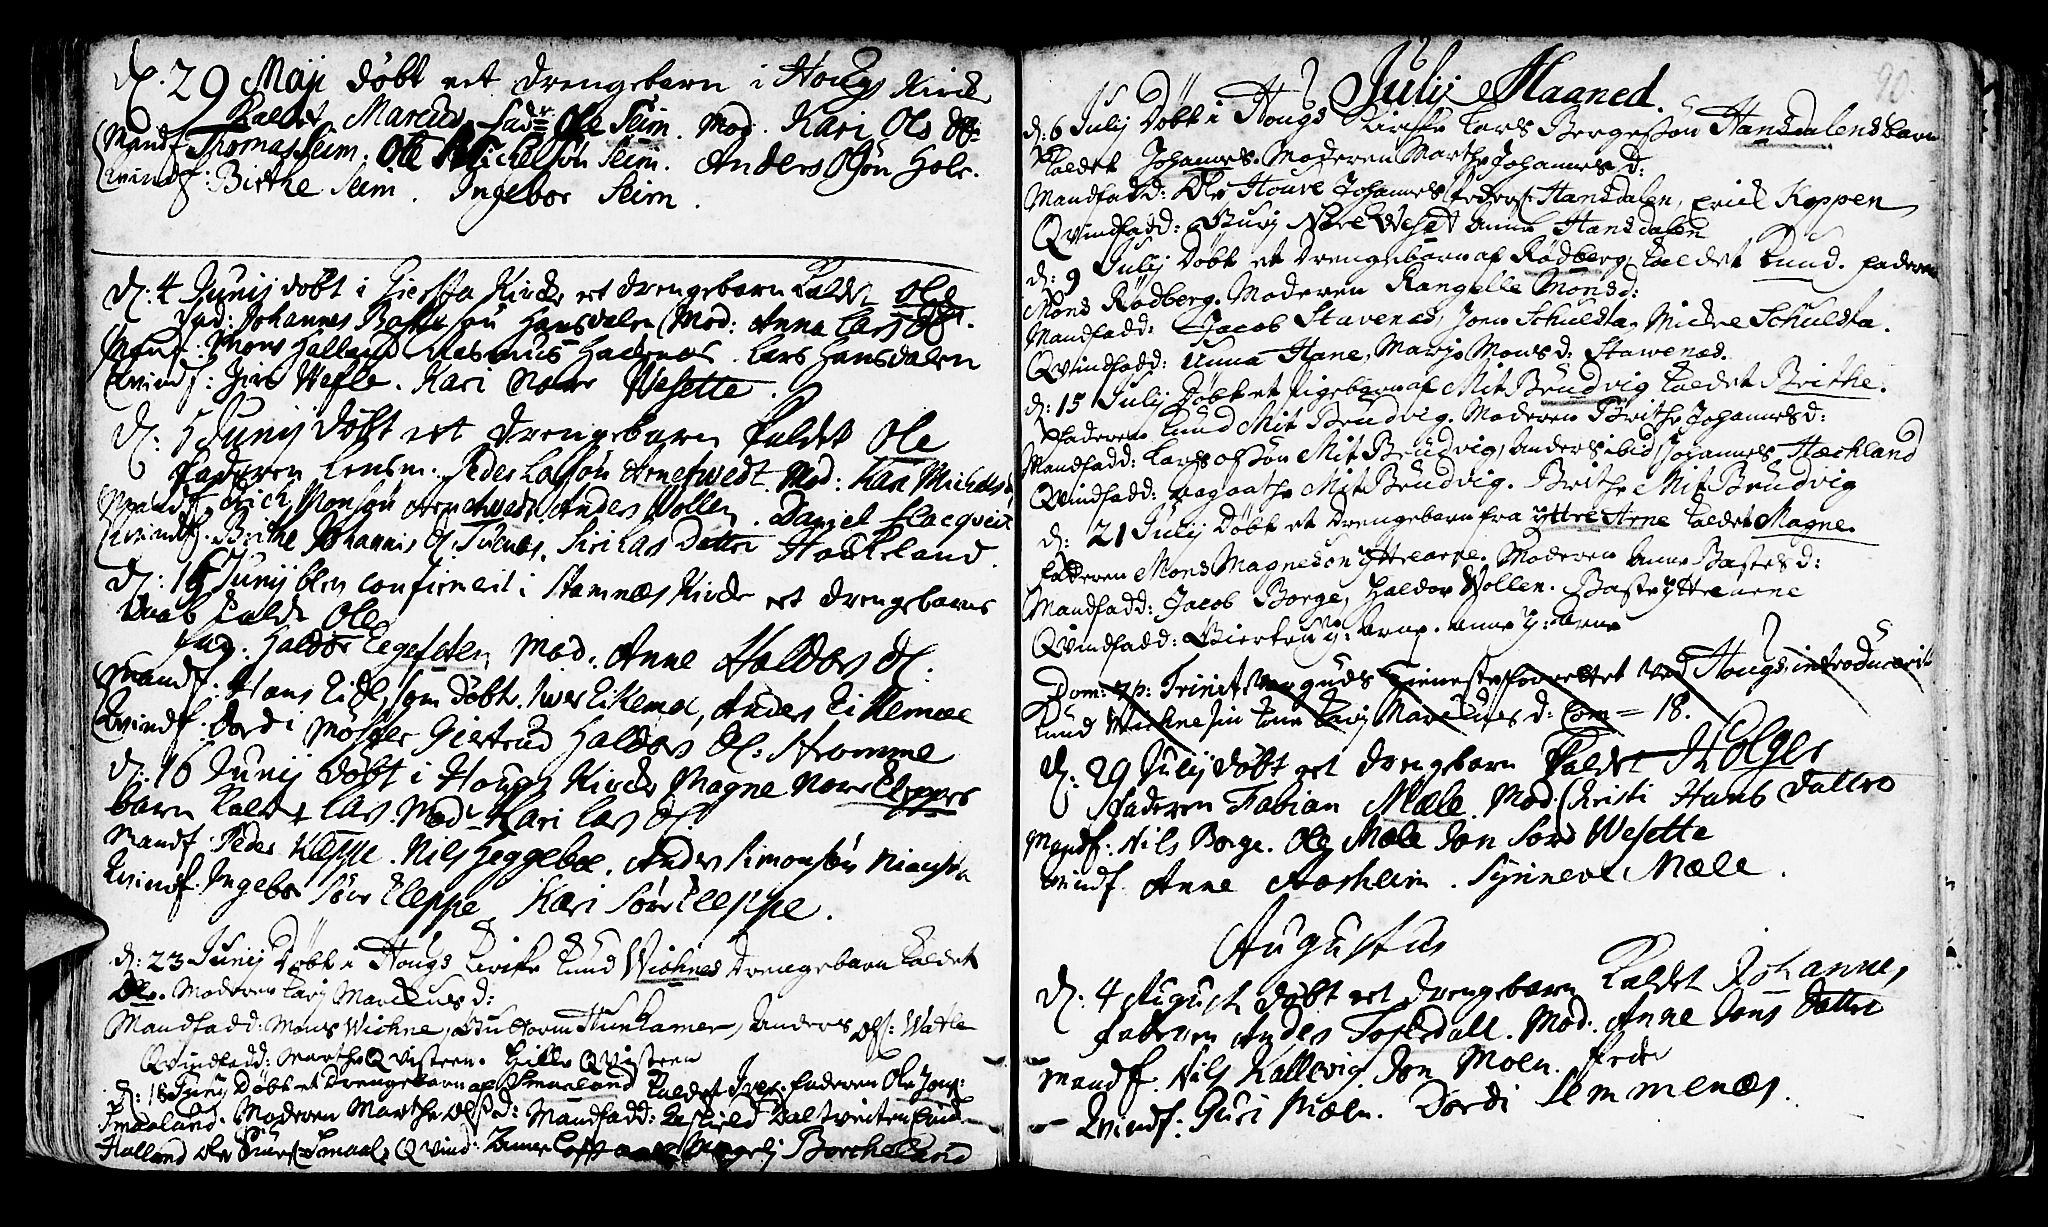 d. 29 Maji döbt eet drengebarn i Hougs Kircke
kaldet Marcus fadr Ole Seim. Mod. Kari Ols dr
Mandf Thomas Seim. Ole Michelsön Seim. Anders Olsön Hole.
Kvindf: Birthe Seim. Ingebor Seim.
d. 4 Junij döbt i Hiersta Kircke eet drengebarn kaldt Ole
fad: Johannes hansdalen Mod: Anna Lars d.
Mandf: Mons Halland Rasmus Lars Hansdalen
Kvindf: Vefle. Kari Nore Vesette.
d. 5 Junij döbt eet drengebarn kaldet Ole
faderen Lensm. Peder Larsön Arnetwedt Mod: Kari Michels
Mandf. Erich Monsön Arnetwedt. Anders Vollen. Daniel Flacqveit
Kvindf. Birthe Johannis d. Siri Las Datter Houkeland.
d: 16 Junij blev confirmeret i Stamnæs Kircke eet drengebarns
Daab kaldt Ole
fad: Haldor Eegeseter Mod: Anne Haldors d:
Mandf: Hans Eide, som döbte. Iver Eikemoe, Anders Eikemoe
Kvindf: Dordi Mölster Giertrud Haldors d: Stramme
d. 16 Junij döbt i Hougs Kircke Magne Nore Kleppes
barn kaldet Las. Modr Kari Las d.
Mandf: Peder Kleppe. Nils Heggeboe. Anders Simonsön
Kvindf. Ingebor Söre Kleppe Kari Söre Kleppe.
d: 23 Junij Döbt i Hougs Kircke Knud Wichnes drengebarn kaldet
Ole. Moderen Kary Marcusis d:
Mandfadd: Mons Wichne, Guttorm Hunhamer, Anders Ols: Watle
Qvindfadd: Marthe Qvisteen. Hille Qvisteen
d: 18 Junij Döbt et Drengebarn af Smaaland kaldet Iver. faderen Ole Jons:
Smaaland. Moderen Marthe Ols d: Mandfadd: Eskield Daltveiten
Halland Ole Qvind: Borcheland
Julij Maaned.
90
d: 6 Julij Döbt i Hougs Kircke Lars Bergesön Hansdalens barn
kaldet Johannes. Moderen Marthe Johannes d:
Mandfadd: Ole Houve Johannes Peders: Hansdalen, Erick Koppen
Qvindfadd: Gury Nore Veset Anna Hansdalen
d: 9 Julij Döbt et Drengebarn af Rödberg kaldet Knud. faderen
Mons Rödberg. Moderen Rangelle Mons d:
Mandfadd: Jacob Stavenes, Joen Schulsta, Michel Schulsta.
Qvindfadd: Anna Hane, Marje Mons d: Stavenes.
d: 15 Julij Döbt et Pigebarn af Mit Brudvig kaldet Brithe.
faderen Knud Mit Brudvig. Moderen Brithe Johannes d:
Mandfadd: Lars Ols: Mit Brudvig, Anders ibid, Johannes Hæchland
Qvindfadd: Aagaathe Mit Brudvig. Brithe Mit Brudvig
d: 21 Julij Döbt et Drengebarn fra Yttre Arne kaldet Magne.
faderen Mons Magnesön Yttrearne. Moderen Anne Bastes d:
Mandfadd: Jacob Borge, Haldor Wollen. Baste Yttrearne
Qvindfadd: Giertru Y: Arne. Anne Y: Arne
Dom: 7 p: Trinit: var Guds tieneste forrettet ved Hougs. introducerit
Knud Wichne sin kone Kary Marcusis d: Com = 18.
d: 29 Julij döbt eet drengebarn kaldet Holger
Faderen Fabian Mæle. Mod: Christi Hans datter
Mandf: Nils Borge. Ole Mæle Jon Söre Wesette
Kvindf. Anne Aasheim. Synneve Mæle.
Augustus
d. 4 August döbt eet drengebarn kaldet Johannes
faderen Anders Toskedall. Mod: Anne Jons datter
Mandf. Nils Kallevig. Jon Moen. Peder
Kvindf: Guri Mæle. Dordi Semmenæs.